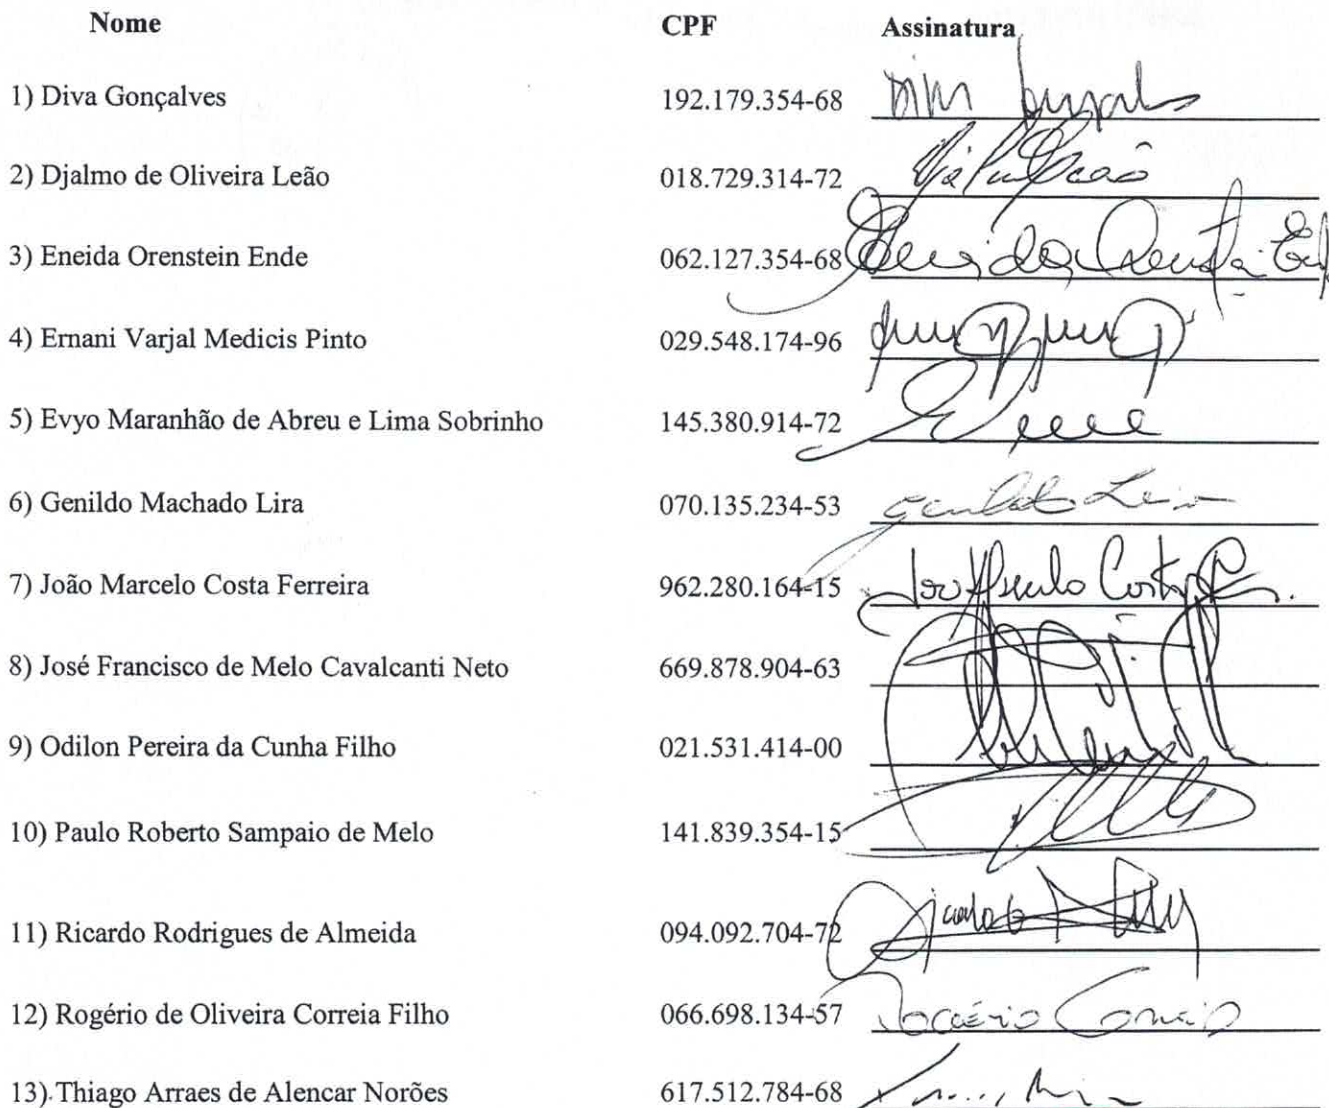 Nome CPF Assinatura
1) Diva Gonçalves 192.179.354-68
2) Djalmo de Oliveira Leão 018.729.314-72
3) Eneida Orenstein Ende 062.127.354-68
4) Ernani Varjal Medicis Pinto 029.548.174-96
5) Evyo Maranhão de Abreu e Lima Sobrinho 145.380.914-72
6) Genildo Machado Lira 070.135.234-53
7) João Marcelo Costa Ferreira 962.280.164-15
8) José Francisco de Melo Cavalcanti Neto 669.878.904-63
9) Odilon Pereira da Cunha Filho 021.531.414-00
10) Paulo Roberto Sampaio de Melo 141.839.354-15
11) Ricardo Rodrigues de Almeida 094.092.704-72
12) Rogério de Oliveira Correia Filho 066.698.134-57 Rogério Correia
13) Thiago Arraes de Alencar Norões 617.512.784-68